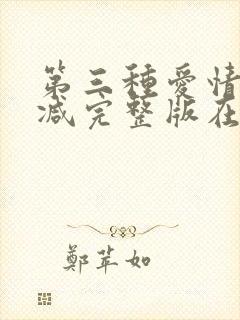 第三種愛情
減完整版在
鄭苹如